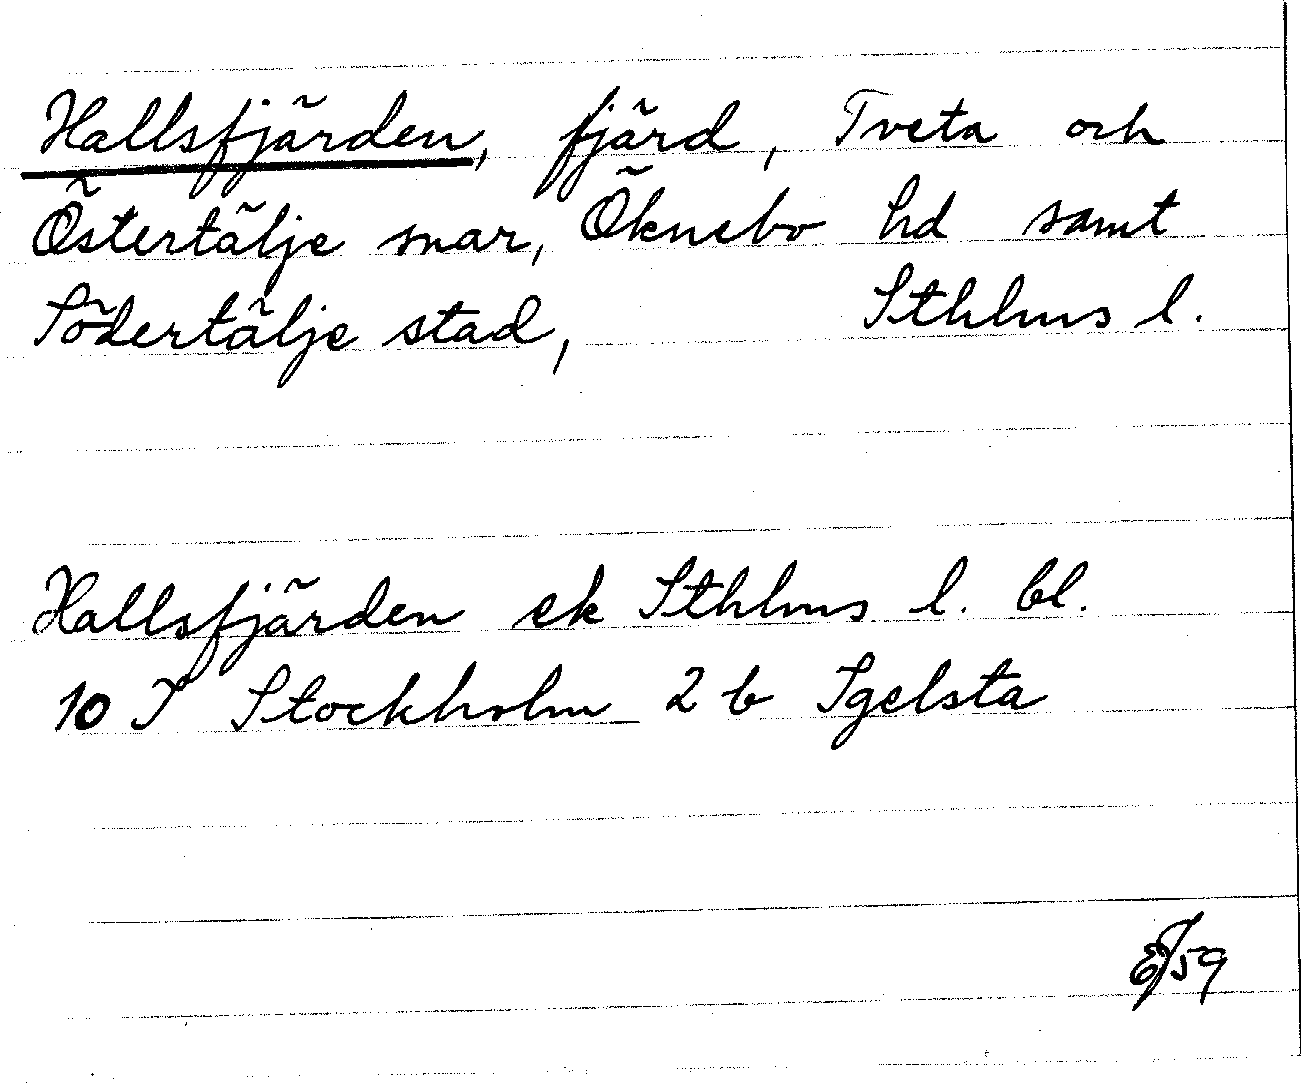 Hallsfjärden, fjärd, Tveta och
Östertälje snar, Öknebo hd samt
Södertälje stad, Sthlms l.
Hallsfjärden ek Sthlms l. bl.
10 I Stockholm 2 b Igelsta
/59